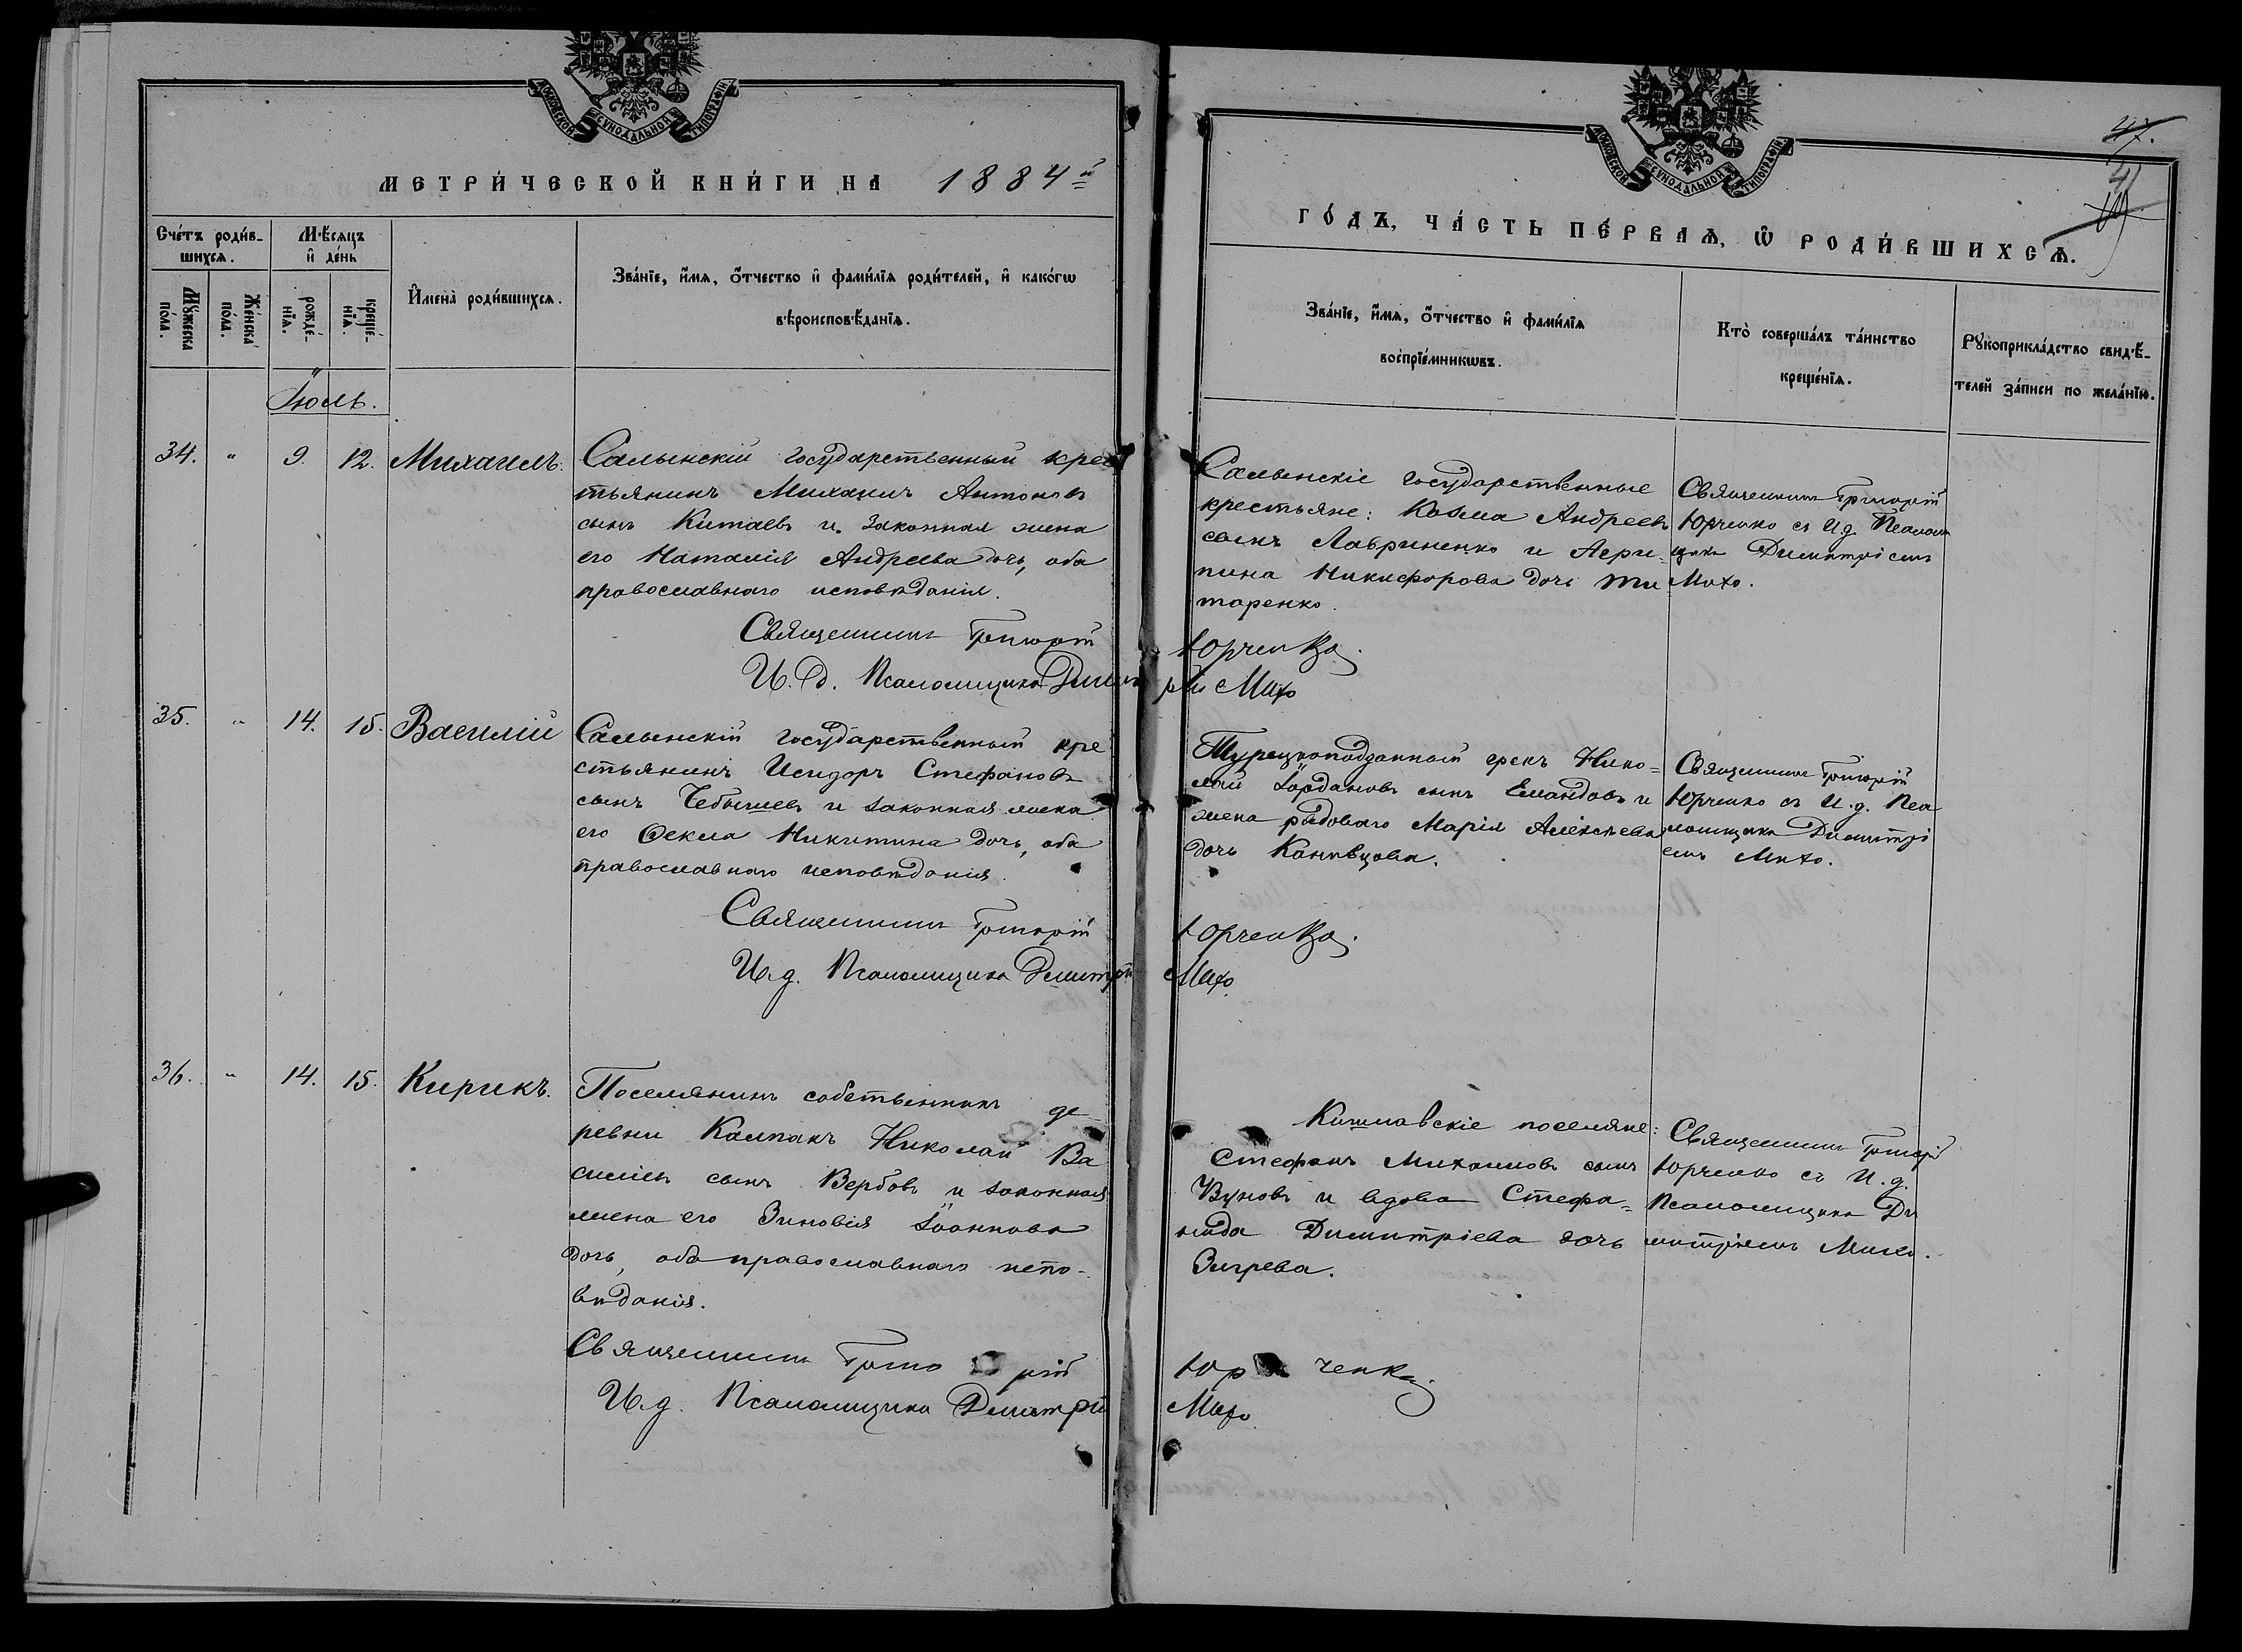 МОСКОВСКОЙ СѴНОДАЛЬНОЙ ТИПОГРАФІИ
МЕТРИ́ЧЕСКОЙ КНИ́ГИ НА 1884й
Сче́тъ роди́в-
шихсѧ.
Мѣ́сѧцъ
и҆ де́нь
Мꙋ́жеска
по́ла.
Же́нска
по́ла.
рожде́-
нїѧ.
креще́-
нїѧ.
И҆мена̀ роди́вшихсѧ.
Зва́нїе, и҆́мѧ, ѻ҆́тчество и҆ фами́лїѧ роди́телей, и҆ како́гѡ
вѣроисповѣ́данїѧ.
Іюль.
34. " 9. 12. Михаилъ.
Салынскій государственный крес
тьянинъ Михаилъ Антоновъ
сынъ Китаевъ и законная жена
его Наталія Андреева дочь, оба
православнаго исповѣданія.
Священникъ Григорій
И. д. Псаломщика Димит
35. " 14. 15. Василій
Салынскій государственный кре
стьянинъ Исидоръ Стефановъ
сынъ Чебышевъ и законная жена
его Ѳекла Никитина дочь, оба
православнаго исповѣданія.
Священникъ Григорій
И. д. Псаломщика Димитрій
36. " 14. 15. Кирикъ.
Поселянинъ собственникъ де
ревни Кампакъ Николай Ва
силіевъ сынъ Вербовъ и законная
жена его Зиновія Іоаннова
дочь, оба православнаго испо-
вѣданія.
Священникъ Григорій
И. д. Псаломщика Димитрій
МОСКОВСКОЙ СѴНОДАЛЬНОЙ ТИПОГРАФІИ
47.
ГО́ДЪ, ЧА́СТЬ ПЕ́РВАѦ, Ѡ҆ РОДИ́ВШИХСѦ.
Зва́нїе, и҆́мѧ, ѻ҆́тчество и҆ фами́лїѧ
воспрїе́мникѡвъ.
Кто̀ соверша́лъ та́инство
креще́нїѧ.
Рꙋкоприкла́дство свидѣ́-
телей за́писи по жела́нїю.
Салынскіе государственные
крестьяне: Козма Андреевъ
сынъ Лавриненко и Агри-
пина Никифорова дочь Ти
таренко.
Священникъ Григорій
Юрченко съ И. д. Псалом
щика Димитріемъ
Михо.
Юрченко.
рій Михо
Турецкоподданный грекъ Нико=
лай Іордановъ сынъ Емандовъ и
жена рядоваго Марія Алексѣева
дочь Канивцова.
Священникъ Григорій
Юрченко съ И. д. Пса
ломщика Димитрі
емъ Михо.
Юрченко.
Михо
Кишлавскіе поселяне:
Стефанъ Михаиловъ сынъ
Вуновъ и вдова Стефа=
нида Димитріева дочь
Зигрева.
Священникъ Григорій
Юрченко съ И. д.
Псаломщика Ди
митріемъ Михо.
Юрченко.
Михо